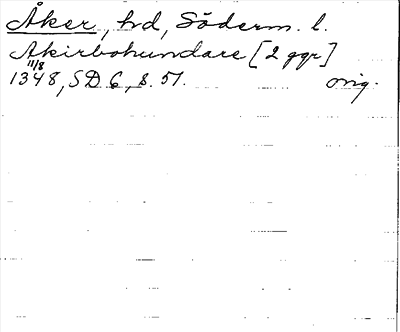 Åker, hd, Söderm. l.
Akirbohundare [2 ggr]
1348 11/8, SD 6, s. 51. orig.